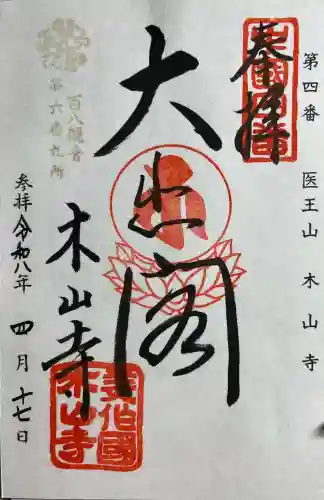 第四番 医王山 木山寺
奉拝
大悲閣
百八観音
第六番札所
木山寺
参拝 令和八年 四月 十七日
美作國
木山寺